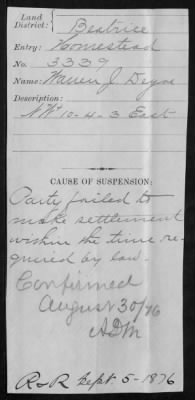 Land
District: Beatrice
Entry: Homestead
No. 3339
Name: Warren J. Deyoe
Description:
NW 10-4-3 East
CAUSE OF SUSPENSION:
Party failed to
make settlement
within the time re-
quired by law.
Confirmed
August 30/76
ADM
R&R Sept. 5-1876